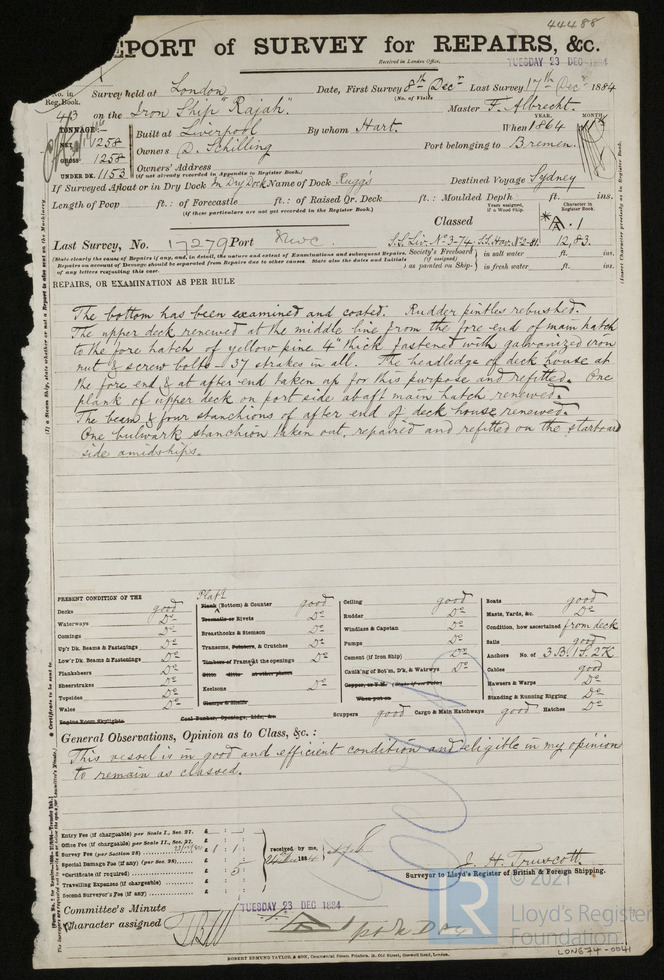 44488
REPORT of SURVEY for REPAIRS, &c.
Received in London Office,
TUESDAY 23 DEC 1884
No. in Reg. Book.
Survey held at London Date, First Survey 8th Decr Last Survey 17th Decr 1884
(No. of Visits
413 on the Iron Ship "Rajah". Master F. Albrecht.
TONNAGE:
YEAR. MONTH
NET 1258 Built at Liverpool By whom Hart. When 1864
GROSS 1258 Owners D. Schilling Port belonging to Bremen.
UNDER DK. 1153 Owners' Address
(if not already recorded in Appendix to Register Book.)
If Surveyed Afloat or in Dry Dock In Dry Dock Name of Dock Rugg's Destined Voyage Sydney
Length of Poop ft.: of Forecastle ft.: of Raised Qr. Deck ft.: Moulded Depth ft. ins.
(if these particulars are not yet recorded in the Register Book.)
Years assigned, if a Wood Ship.
Character in Register Book.
Classed * A. 1
Last Survey, No. 17279 Port S.S. Liv. No. 3-74, S.S. Hav. No. 2-81. 12,83.
(State clearly the cause of Repairs if any, and, in detail, the nature and extent of Examinations and subsequent Repairs.
Repairs on account of Damage should be separated from Repairs due to other causes. State also the dates and Initials
of any letters respecting this case.
Society's Freeboard (if assigned) as painted on Ship—
in salt water ft. ins.
in fresh water ft. ins.
REPAIRS, OR EXAMINATION AS PER RULE
The bottom has been examined and coated. Rudder pintles rebushed.
The upper deck renewed at the middle line from the fore end of main hatch
to the fore hatch of yellow pine 4" thick fastened with galvanized iron
nut & screw bolts – 37 strakes in all. The headledge of deck house at
the fore end & at after end taken up for this purpose and refitted. One
plank of upper deck on port side abaft main hatch renewed.
The beam & four stanchions of after end of deck house renewed.
One bulwark stanchion taken out, repaired and refitted on the starboard
side amidships.
PRESENT CONDITION OF THE
Decks good
Waterways Do
Comings Do
Up'r Dk. Beams & Fastenings Do
Low'r Dk. Beams & Fastenings Do
Planksheers Do
Sheerstrakes Do
Topsides Do
Wales Do
Engine Room Skylights
Coal Bunker, Openings, Lids, &c.
Platg
Plank (Bottom) & Counter good
Treenails or Rivets Do
Breasthooks & Stemson Do
Transoms, Pointers, & Crutches Do
Timbers of Frame at the openings Do
Ditto ditto at other places
Keelsons Do
Clamps & Shelfs
Ceiling good
Rudder Do
Windlass & Capstan Do
Pumps Do
Cement (if Iron Ship) Do
Caulk'ng of Bot'm, D'k, & Watrwys Do
Copper, or Y.M.
When put on
Scuppers good Cargo & Main Hatchways good Hatches Do
Boats good
Masts, Yards, &c. Do
Condition, how ascertained from deck
Sails good
Anchors No. of 3 B. 1 S. 2 K
Cables good
Hawsers & Warps Do
Standing & Running Rigging Do
General Observations, Opinion as to Class, &c. :
This vessel is in good and efficient condition and eligible in my opinion
to remain as classed.
Entry Fee (if chargeable) per Scale I., Sec. 27. £ : :
Office Fee (if chargeable) per Scale II., Sec. 27. £ : :
Survey Fee (per Section 28) £ 1 : 1 :
Special Damage Fee (if any) (per Sec. 28) £ : :
Certificate (if required) £ : 5 :
Travelling Expenses (if chargeable) £ : :
Second Surveyor's Fee (if any) £ : :
received by me,
1884
J. H. Truscott
Surveyor to Lloyd's Register of British & Foreign Shipping.
Committee's Minute TUESDAY 23 DEC 1884
Character assigned A 1
ROBERT EDMUND TAYLOR, & SON, Commercial Steam Printers, 19, Old Street, Goswell Road, London.
© 2021
LR
Lloyd's Register
Foundation
LON674-0041